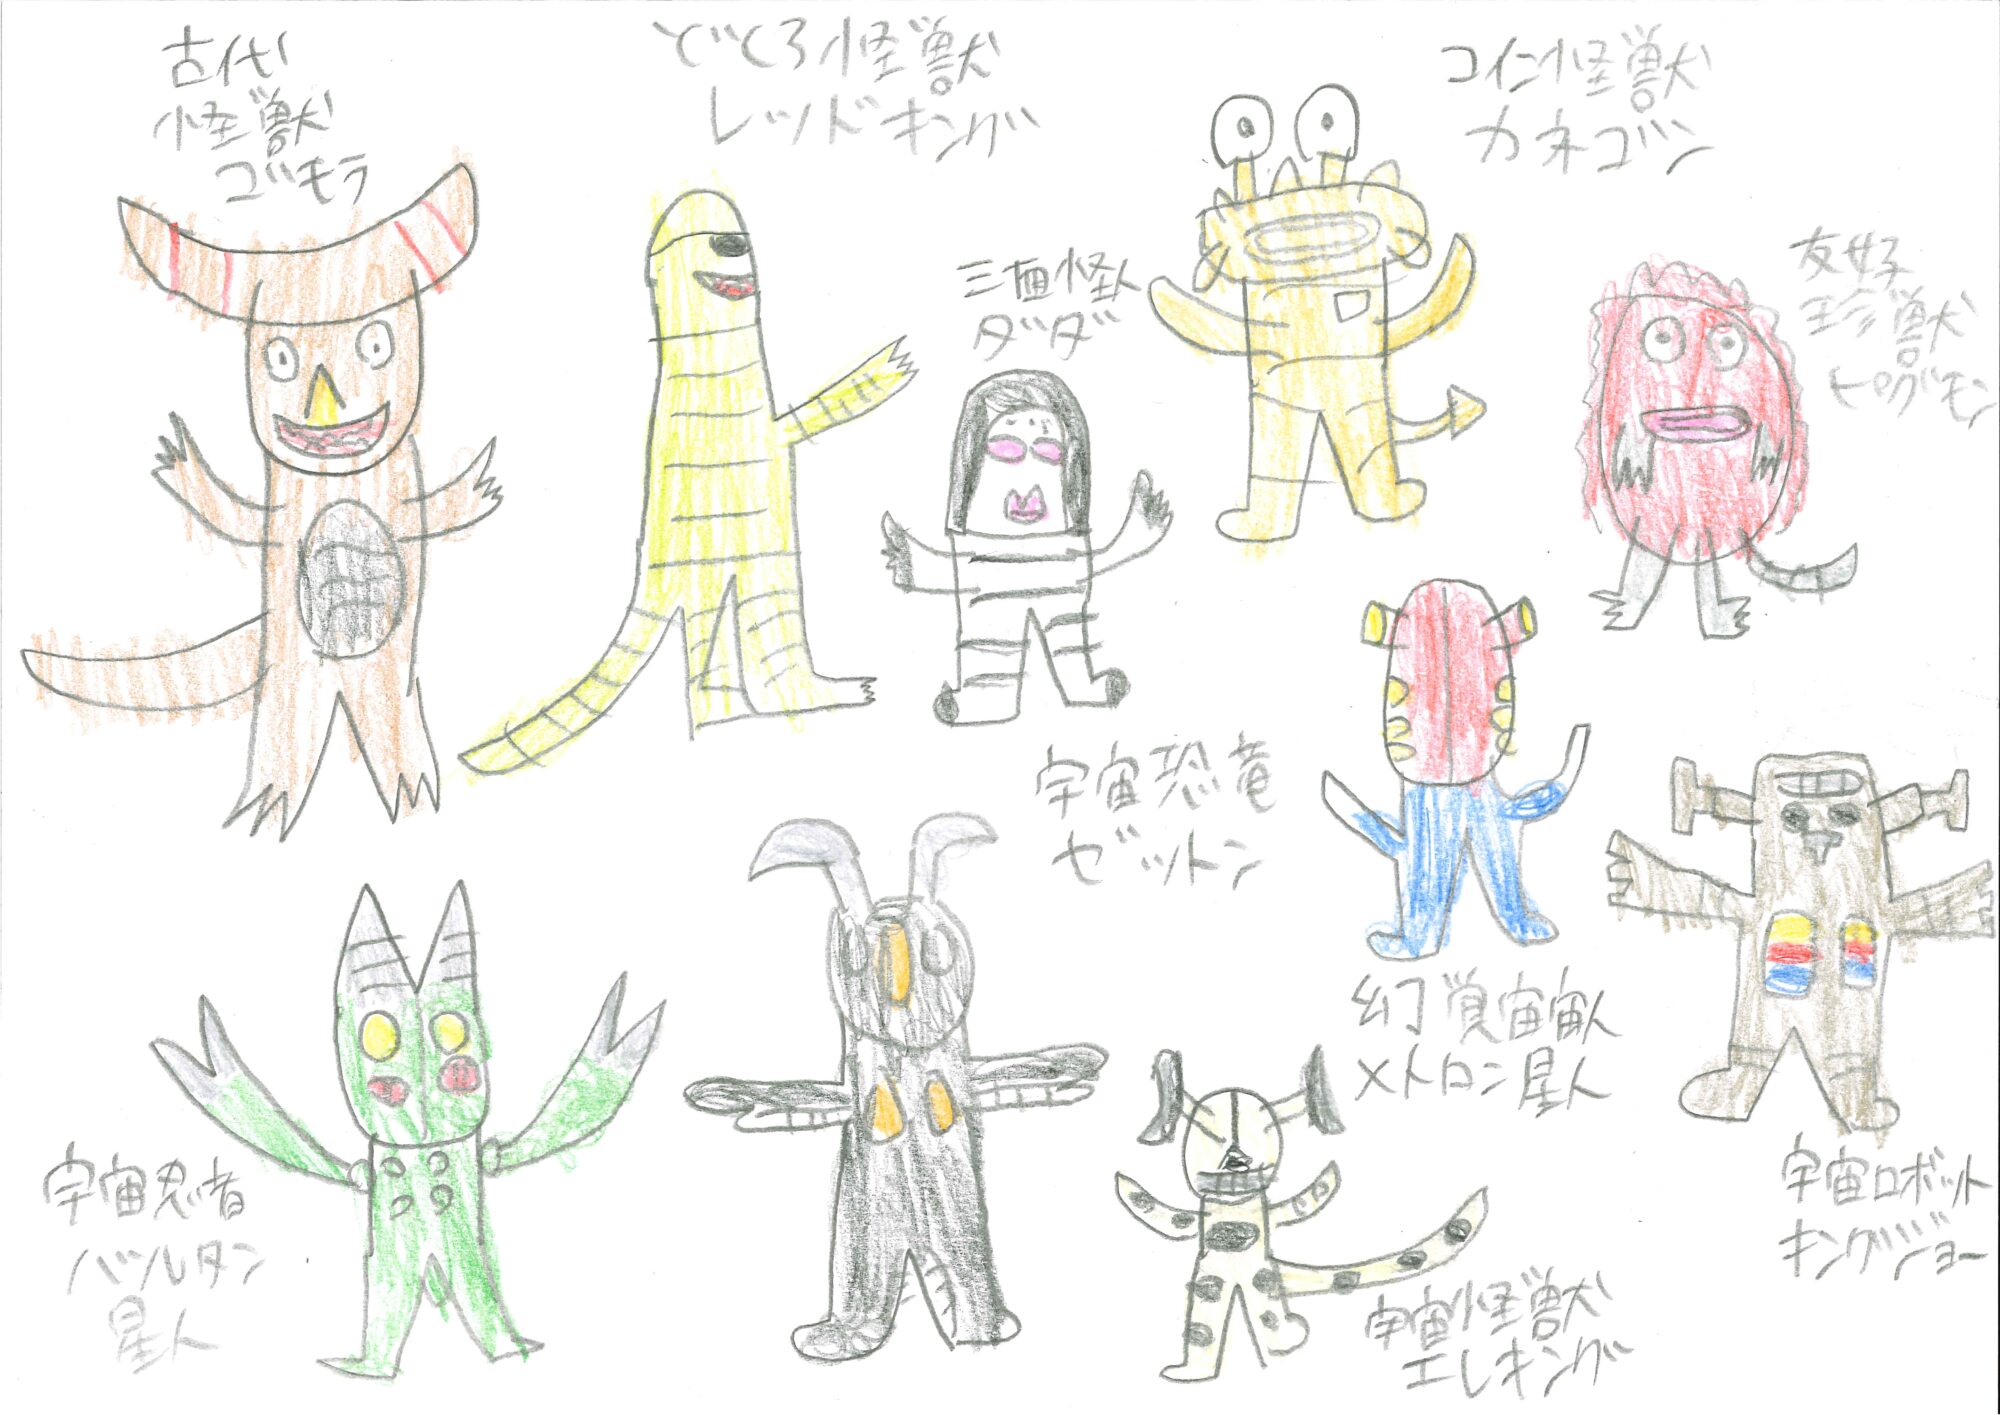 古代
怪獣
ゴモラ
どくろ怪獣
レッドキング
コイン怪獣
カネゴン
三面怪人
ダダ
友好
珍獣
ピグモン
宇宙恐竜
ゼットン
幻覚宇宙人
メトロン星人
宇宙忍者
バルタン
星人
宇宙怪獣
エレキング
宇宙ロボット
キングジョー